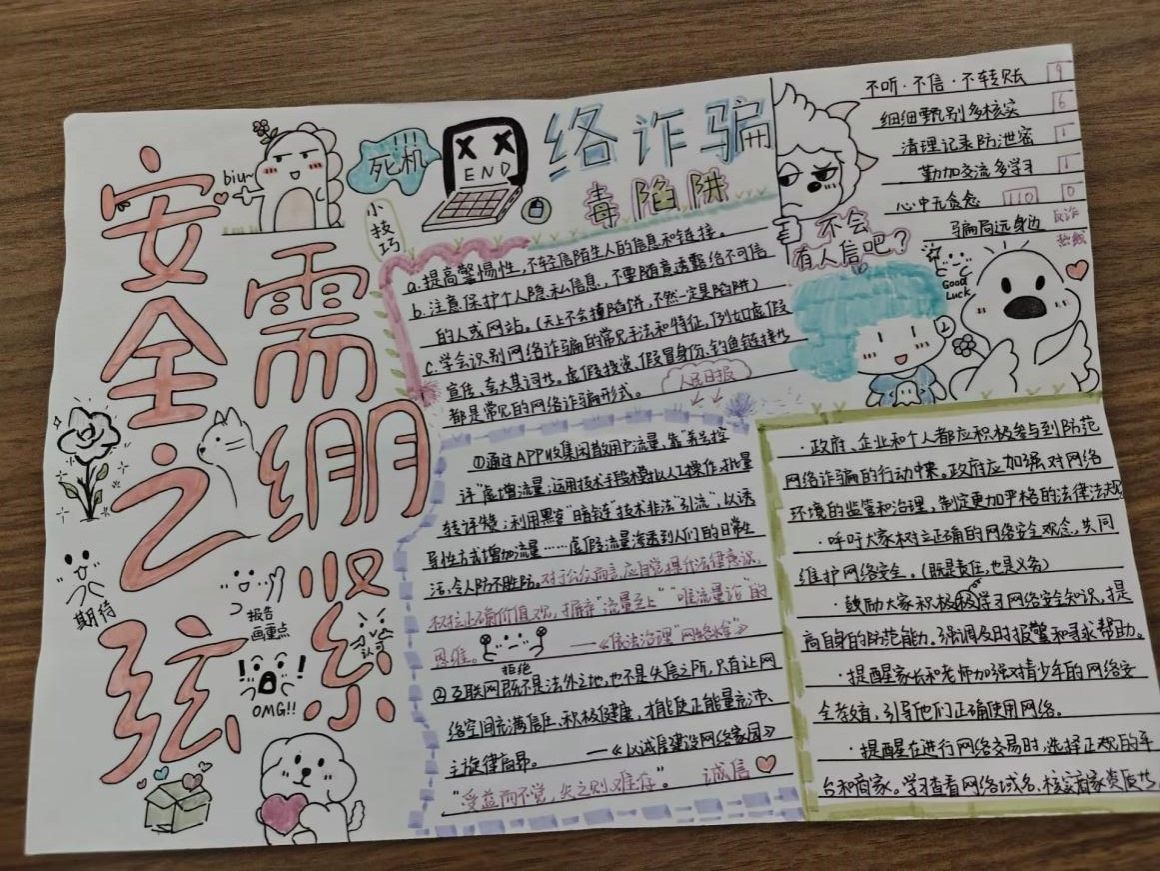 安全之弦
需绷紧
biu~
死机
END
络诈骗
毒陷阱
小技巧
a.提高警惕性,不轻信陌生人的信息和链接。
b.注意保护个人隐私信息,不要随意透露给不可信
的人或网站。(天上不会掉陷饼,不然一定是陷阱)
c.学会识别网络诈骗的常见手法和特征,例如虚假
宣传、夸大其词性。虚假投资、假冒身份、钓鱼链接
都是常见的网络诈骗形式。
人民日报
不听·不信·不转账
细细甄别多核实
清理记录防泄密
勤加交流多学习
心中无贪念
骗局远身边
9
6
1
1
110
0
反诈
热线
不会
有人信吧?
Good
Luck
①通过APP收集闲散用户流量,靠
评"虚增流量;运用技术手段模拟人工操作,批量
转评赞;利用黑客"暗链"技术非法"引流",以诱
导性方式增加流量……虚假流量渗透到人们的日常生
活,令人防不胜防。对于公众而言,应自觉提升法律意识,
树立正确价值观,摒弃"流量至上""唯流量论"的
思维。
拒绝
——《依法治理"网络水军"》
②互联网既不是法外之地,也不是失信之所,只有让网
络空间充满信任、积极健康,才能使正能量充沛、
主旋律高昂。
——《以诚信建设网络家园》
"受益而不觉,失之则难存"。
诚信
·政府、企业和个人都应积极参与到防范
网络诈骗的行动中来。政府应加强对网络
环境的监管和治理,制定更加严格的法律法规
·呼吁大家树立正确的网络安全观念,共同
维护网络安全。(既是责任,也是义务)
·鼓励大家积极学习网络安全知识,提
高自身的防范能力。强调及时报警和寻求帮助。
·提醒家长和老师加强对青少年的网络安
全教育,引导他们正确使用网络。
·提醒在进行网络交易时,选择正规的平
台和商家。学习查看网络域名、核实商家资质
期待
报告
画重点
认可
OMG!!